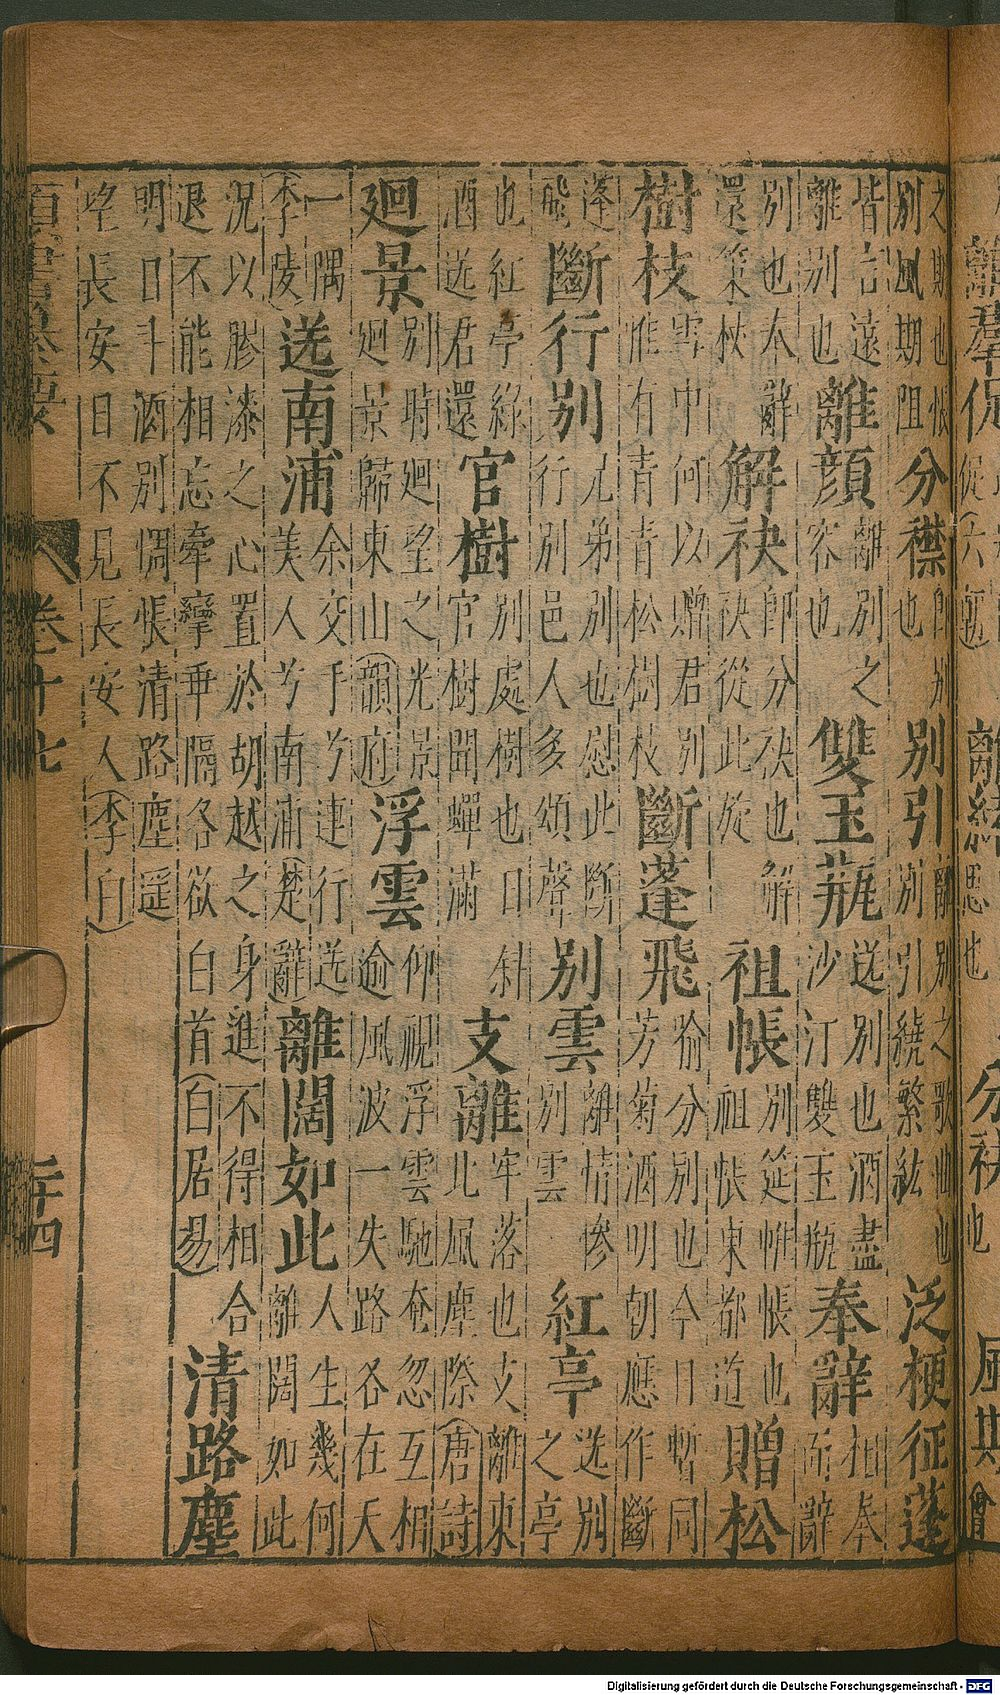 之期也悵別風期阻分襟即別也別引離別之歌曲也別引繞繁絃泛梗征蓬
皆言遠離別也離顏離別之容也雙玉瓶送別也酒盡沙汀雙玉瓶奉辭相奉而辭
別也本辭還策杖解袂即分袂也解袂從此旋祖帳別筵帷帳也祖帳東都道贈松
樹枝雪中何以贈君別惟有青青松樹枝斷蓬飛喻分別也今日暫同芳菊酒明朝應作斷
蓬飛斷行別兄弟別也慰此斷行別邑人多頌聲別雲離情慘別雲紅亭送別之亭
也紅亭綠酒送君還官樹別處樹也日斜官樹聞蟬滿支離牢落也支離東北風塵際(唐詩)
廻景別時廻望之光景廻景歸東山(韻府)浮雲仰視浮雲馳奄忽互相逾風波一失路各在天
一隅(李陵)送南浦余交手兮連行送美人兮南浦(楚辭)離闊如此人生幾何離闊如此
況以膠漆之心置於胡越之身進不得相合退不能相忘牽攣乖隔各欲白首(白居易)清路塵
明日斗酒別惆悵清路塵遥望長安日不見長安人(李白)
卷十七 二十四
Digitalisierung gefördert durch die Deutsche Forschungsgemeinschaft - DFG